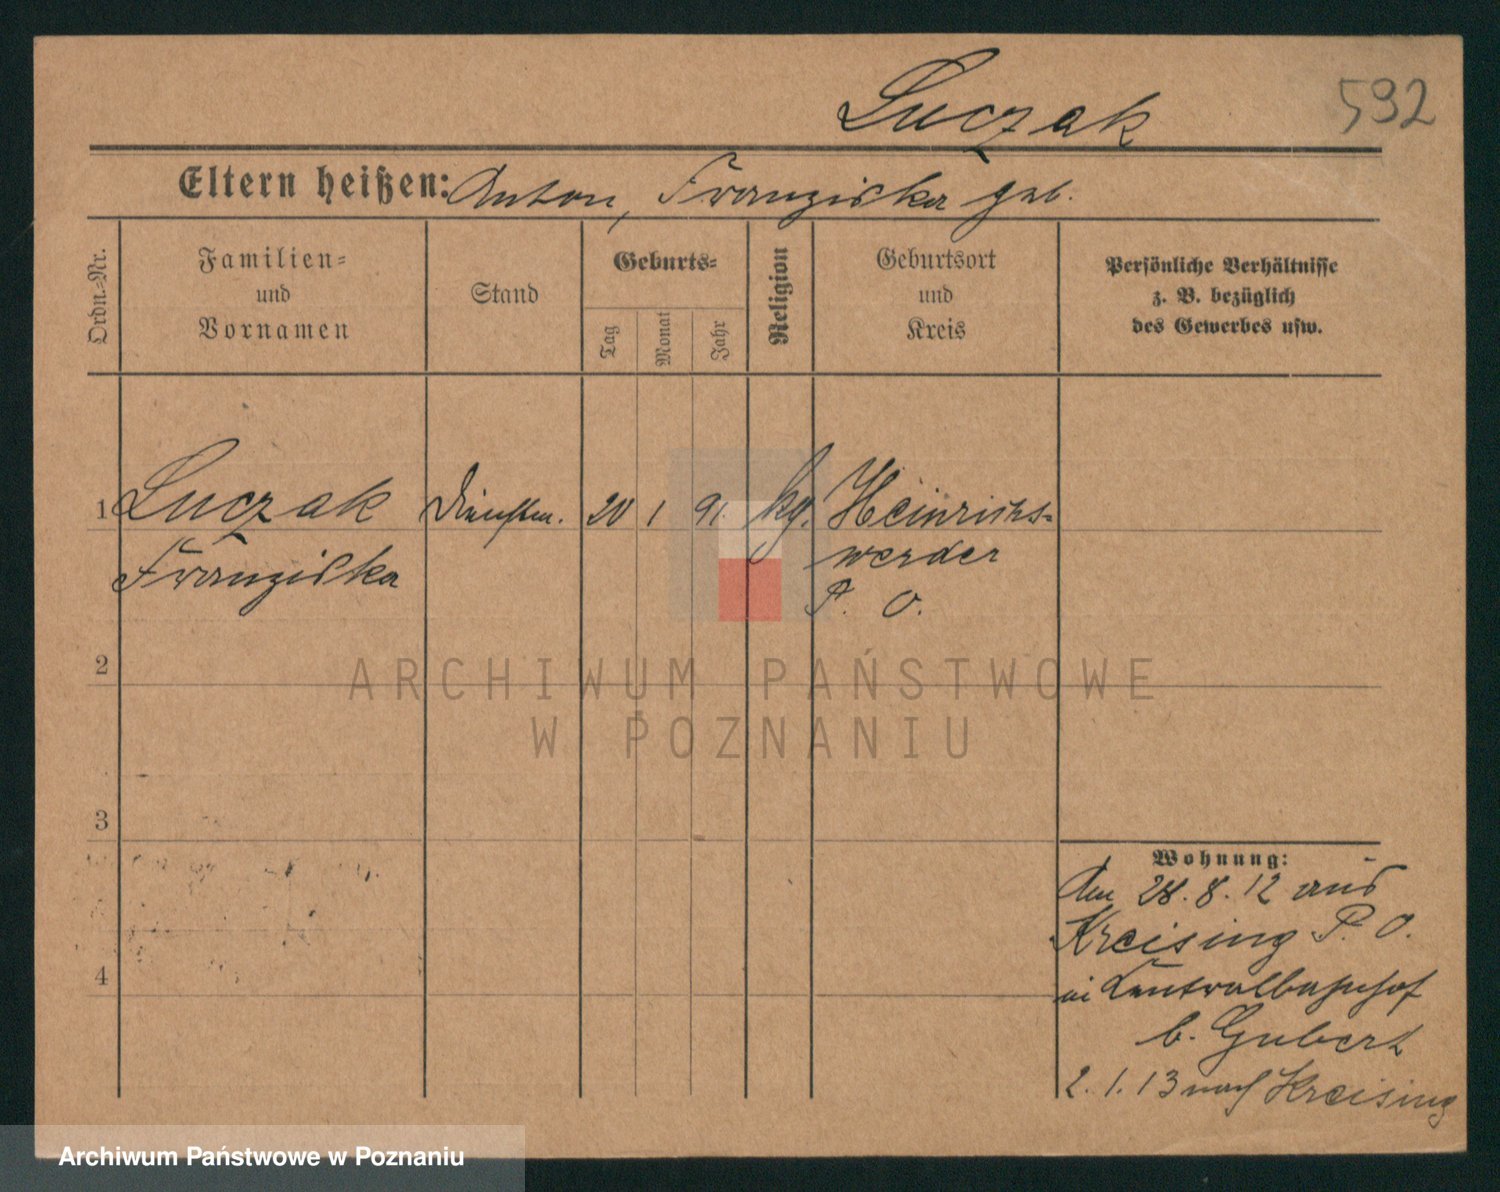 Luczak 592
Eltern heißen: Anton, Franziska geb.
Ordn.-Nr.
Familien-
und
Vornamen
Stand
Geburts-
Tag
Monat
Jahr
Religion
Geburtsort
und
Kreis
Persönliche Verhältnisse
z. B. bezüglich
des Gewerbes usw.
1 Luczak Dienstm. 20 1 91. kg. Heinrichs-
Franziska werder
P. O.
2
3
4
ARCHIWUM PAŃSTWOWE
W POZNANIU
Wohnung:
den 28. 8. 12 aus
Kreising P. O.
in Centralbahnhof
b. Gubert
2. 1. 13 nach Kreising
Archiwum Państwowe w Poznaniu